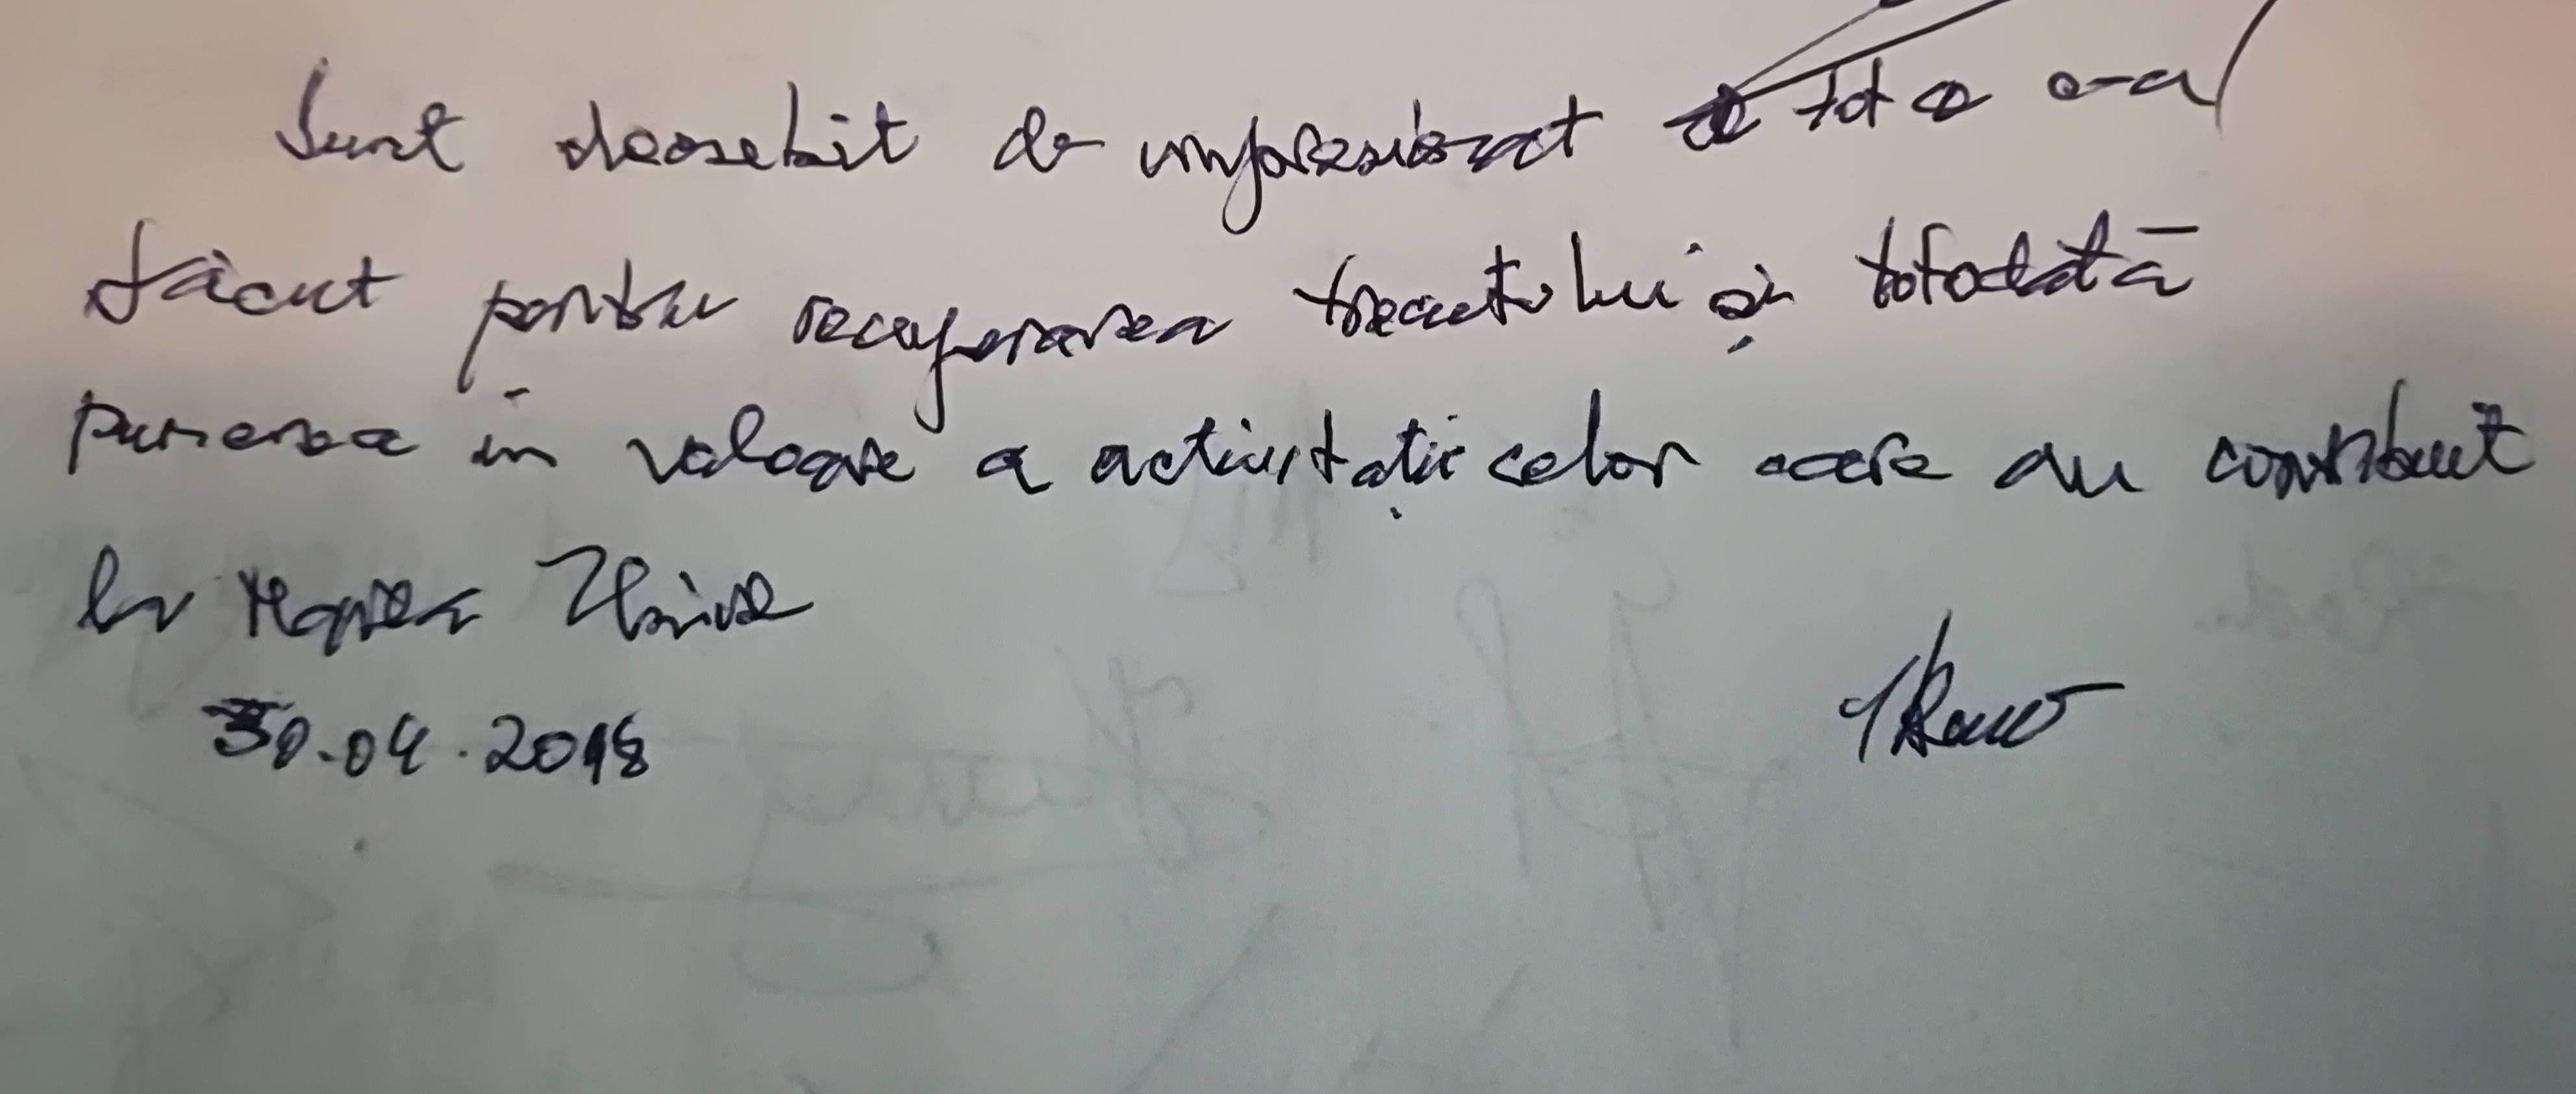 Sunt deosebit de impresionat de tot ce s-a
făcut pentru recuperarea trecutului și totodată
punerea în valoare a activității celor care au contribuit
la Marea Unire
30.04.2018